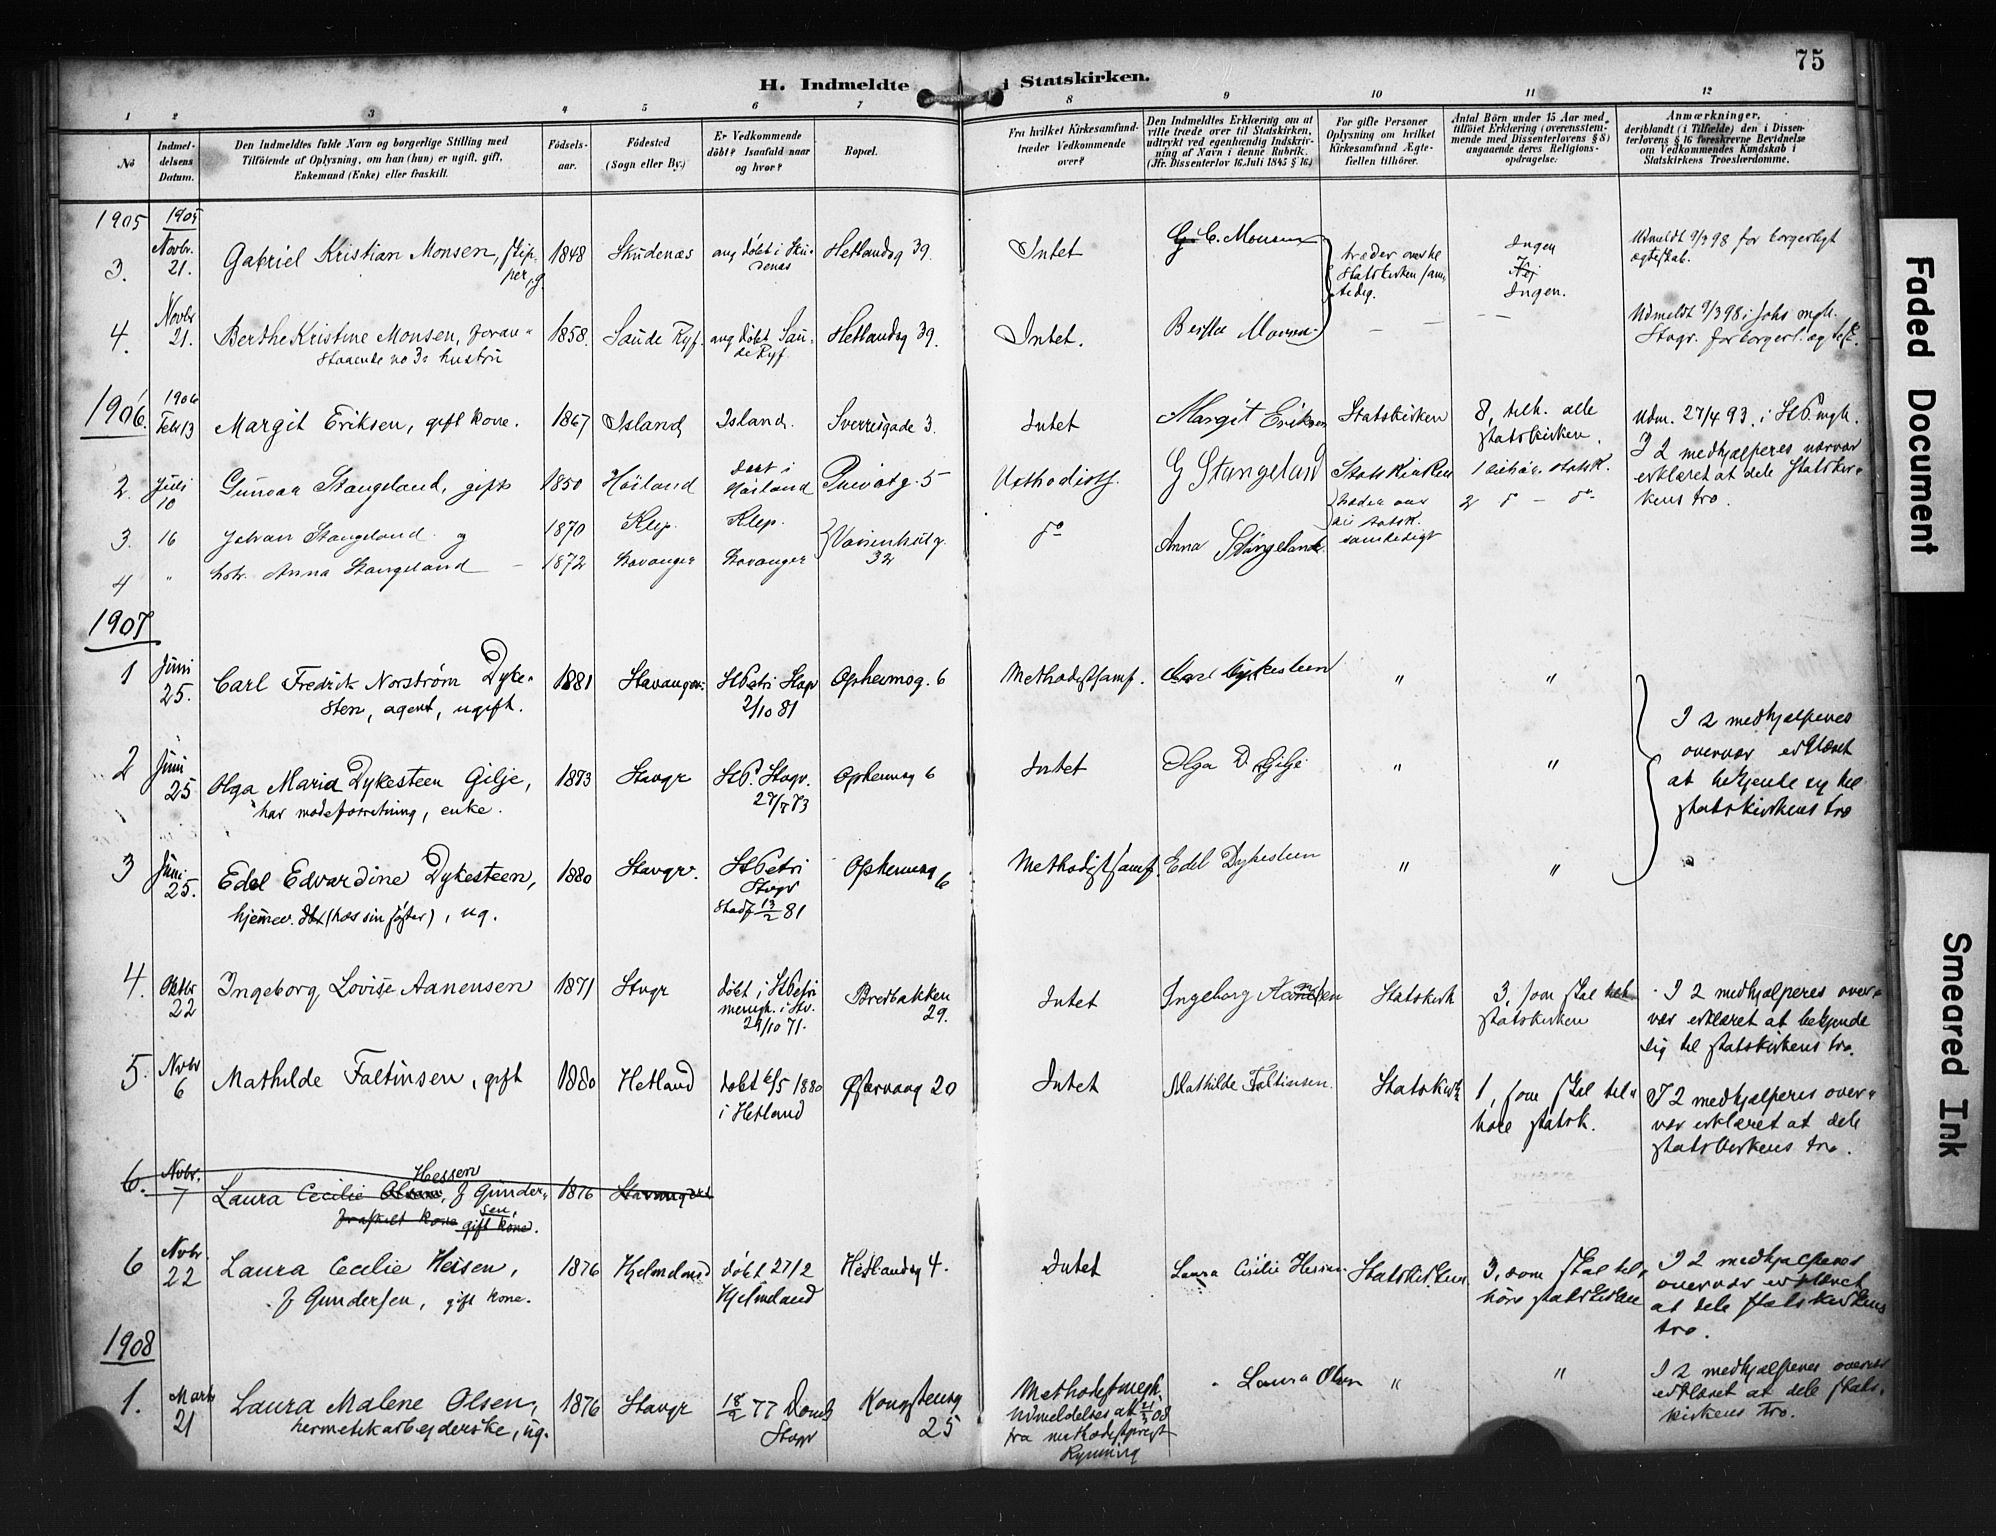 75
H. Indmeldte i Statskirken.
1 2 3 4 5 6 7 8 9 10 11 12
No
Indmel-
delsens
Datum.
Den Indmeldtes fulde Navn og borgerlige Stilling med
Tilföiende af Oplysning, om han (hun) er ugift, gift,
Enkemand (Enke) eller fraskilt.
Födsels-
aar.
Födested
(Sogn eller By.)
Er Vedkommende
döbt? Isaafald naar
og hvor?
Bopæl.
Fra hvilket Kirkesamfund
træder Vedkommende
over?
Den Indmeldtes Erklæring om at
ville træde over til Statskirken,
udtrykt ved egenhændig Indskriv-
ning af Navn i denne Rubrik.
(Jfr. Dissenterlov 16. Juli 1845 § 16.)
For gifte Personer
Oplysning om hvilket
Kirkesamfund Ægte-
fællen tilhörer.
Antal Börn under 15 Aar med
tilföiet Erklæring (overensstem-
mende med Dissenterlovens § 8)
angaaende deres Religions-
opdragelse.
Anmærkninger,
deriblandt (i Tilfælde) den i Dissen-
terlovens § 16 foreskrevne Bevidnelse
om Vedkommendes Kundskab i
Statskirkens Troeslærdomme.
1905 1905
3. Novbr. 21. Gabriel Kristian Monsen, skip-
per, g. 1848 Skudenæs ang døbt i Sku-
denæs Hetlandsg 39. Intet G. C. Monsen
træder over til
Statskirken sam-
tidig.
Ingen
Nej
Ingen.
Udmeldt 9/3 98 for borgerligt
ægteskab.
4. Novbr 21. Berthe Kristine Monsen, foran-
staaende no 3s hustru 1858. Saude Ryf. ang døbt Sau-
de Ryf. Hetlandsg 39. Intet. Berthe Monsen — — —
Udmeldt 9/3 98 i Johs mgh.
Stvgr. for borgerl. ægtesk.
1906. 1906
Febr 13 Margit Eriksen, gift kone. 1867 Island Island. Sverresgade 3. Intet Margit Eriksen Statskirken 8, tilh. alle
statskirken.
Udm. 27/4 93. i St P. mgh.
I 2 medhjælperes nærvær
erklæret at dele Statskir-
kens tro.
2. Juli 10 Gunvar Stangeland, gift 1850 Høiland døbt i
Høiland Privatg. 5 Methodistf. G Stangeland Statskirken 1 statsk.
3. 16 Johan Stangeland og 1870 Klep. Klep. Vaisenhusg.
32 do Anna Stangeland
træder over
til statsk.
samtidigt
2 do — do
4 " hstr. Anna Stangeland — 1872 Stavanger Stavanger
1907
1 Juni 25. Carl Fredrik Norstrøm Dyke-
sten, agent, ugift. 1881 Stavanger. St Petri Stvgr
2/10 81 Opheimsg. 6 Methodistsamf. Carl Dykesteen " "
2 Juni 25 Olga Maria Dykesteen Gilje,
har modeforretning, enke. 1873 Stavgr St P. Stvgr.
27/7 73 Opheimsg 6 Intet Olga D. Gilje " "
I 2 medhjælperes
overvær erklæret
at bekjende sig til
statskirkens tro
3 Juni 25. Edel Edvardine Dykesteen,
hjemmev. dbt (hos sin søster), ug. 1880 Stavgr. St Petri
Stvgr
Stadf 13/2 81 Opheimsg 6 Methodistsamf. Edel Dykesteen " "
4. Oktbr 22 Ingeborg Lovise Aanensen 1871 Stvgr døbt i St Petri
menigh. i Stv.
29/10 71. Bredbakken
29. Intet Ingeborg Aanensen Statskirk 3, som skal tilh
statskirken
I 2 medhjælperes over-
vær erklæret at bekjende
sig til statskirkens tro.
5. Novbr 6 Mathilde Faltinsen, gift 1880 Hetland døbt 6/5 1880
i Hetland Østervaag 20 Intet Mathilde Faltinsen. Statskirk 1, som skal til-
høre statsk.
I 2 medhjælperes over-
vær erklæret at dele
statskirkens tro.
6. Novbr. 7 Laura Cecilie Olsen, Hessen f Gunder-
sen,
fraskilt kone gift kone. 1876 Stavanger
6 Novbr. 22 Laura Cecilie Hessen,
f Gundersen, gift kone. 1876 Hjelmeland døbt 27/2
Hjelmeland Hetlandsg 4. Intet Laura Cicilie Hessen Statskirken 3, som skal til-
høre statskirken
I 2 medhjælperes
overvær erklæret
at dele statskirkens
tro.
1908
1. Marts 21 Laura Malene Olsen,
hermetikarbejderske, ug. 1876 Stavgr 18/2 77 Domk
Stvgr Kongstensg
25 Methodistmegh.
Udmeldelses at 21/3 08
fra methodistprest
Rynning Laura Olsen " "
I 2 medhjælperes overvær
erklæret at dele stats-
kirkens tro.
Faded Document
Smeared Ink